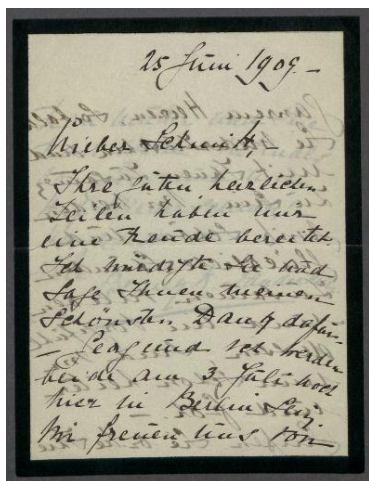 25 Juni 1909. –
Lieber Schmidt, –
Ihre guten herzlichen
Zeilen haben mir
eine Freude bereitet.
Ich Sie und
Sage Ihnen meinen
Schönsten Dank dafür
– und ich werden
beide am 3 Juli noch
hier in Berlin sein,
Wir freuen uns von